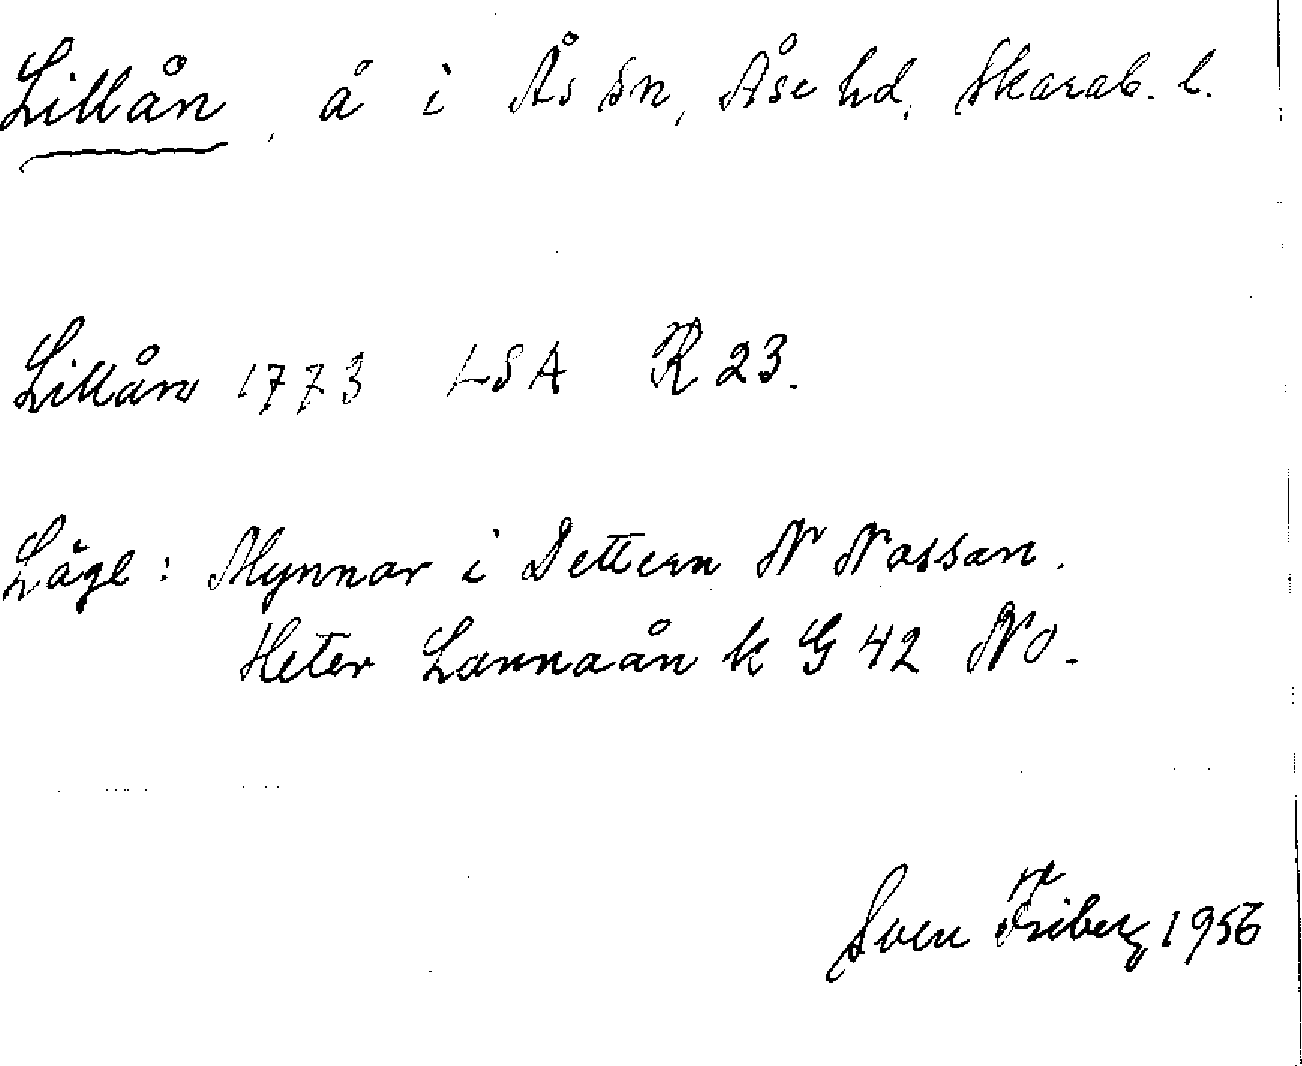 Lillån, å i Ås sn, Åse hd. Skarab. l.
Lillån 1773 LSA R 23.
Läge: Mynnar i Dettern N Nossan.
Heter Lannaån k G 42 NO.
Sven Friberg 1956